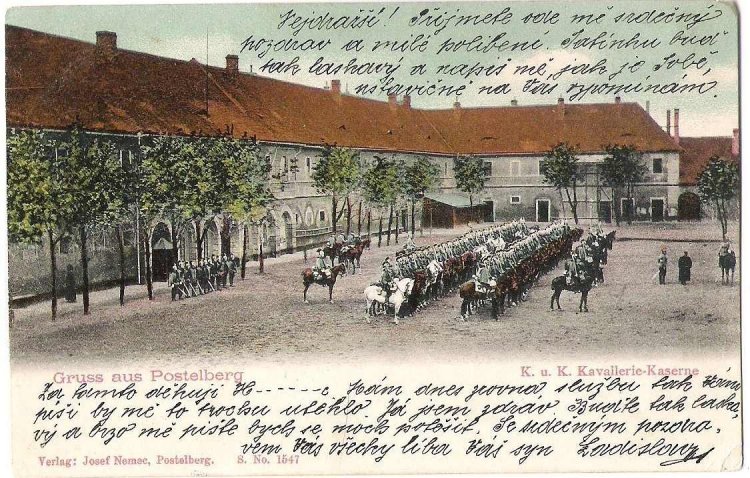 Nejdražší! Přijmete ode mě srdečný
pozdrav a milé políbení. Tatínku buď
tak laskavý a napiš mě jak je Tobě,
ustavičně na Vás vzpomínám.
Gruss aus Postelberg
K. u K. Kavallerie-Kaserne
Za tamto děkuji H------c. Mám dnes zrovna službu tak
píši by mě to trochu uteklo. Já jsem zdráv. Buďte tak laska,
vý a brzo mě pište bych se moch potěšit. Se srdečným pozdra,
vem Vás všechy líbá Váš syn Ladislav
Verlag: Josef Nemec, Postelberg. S. No. 1547